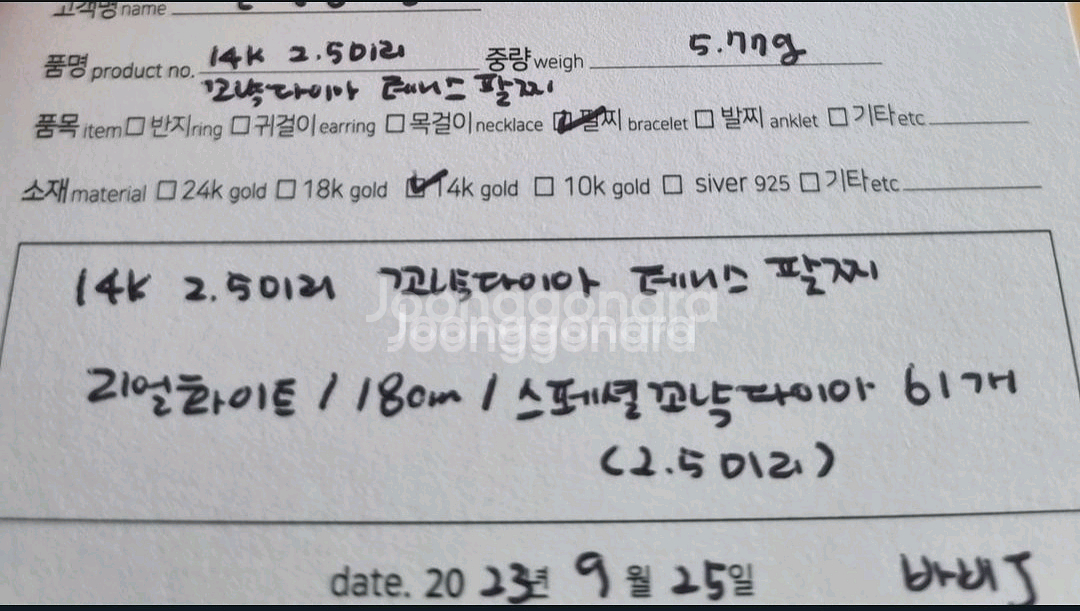 고객명 name
품명 product no. 14K 2.5미리 중량 weigh 5.77g
꼬냑다이아 테니스 팔찌
품목 item □ 반지 ring □ 귀걸이 earring □ 목걸이 necklace ☑ 팔찌 bracelet □ 발찌 anklet □ 기타 etc
소재 material □ 24k gold □ 18k gold ☑ 14k gold □ 10k gold □ siver 925 □ 기타 etc
14K 2.5미리 꼬냑다이아 테니스 팔찌
Joonggonara
Joonggonara
리얼화이트 / 18cm / 스페셜꼬냑다이아 61개
(2.5미리)
date. 20 23년 9 월 25일 바비J